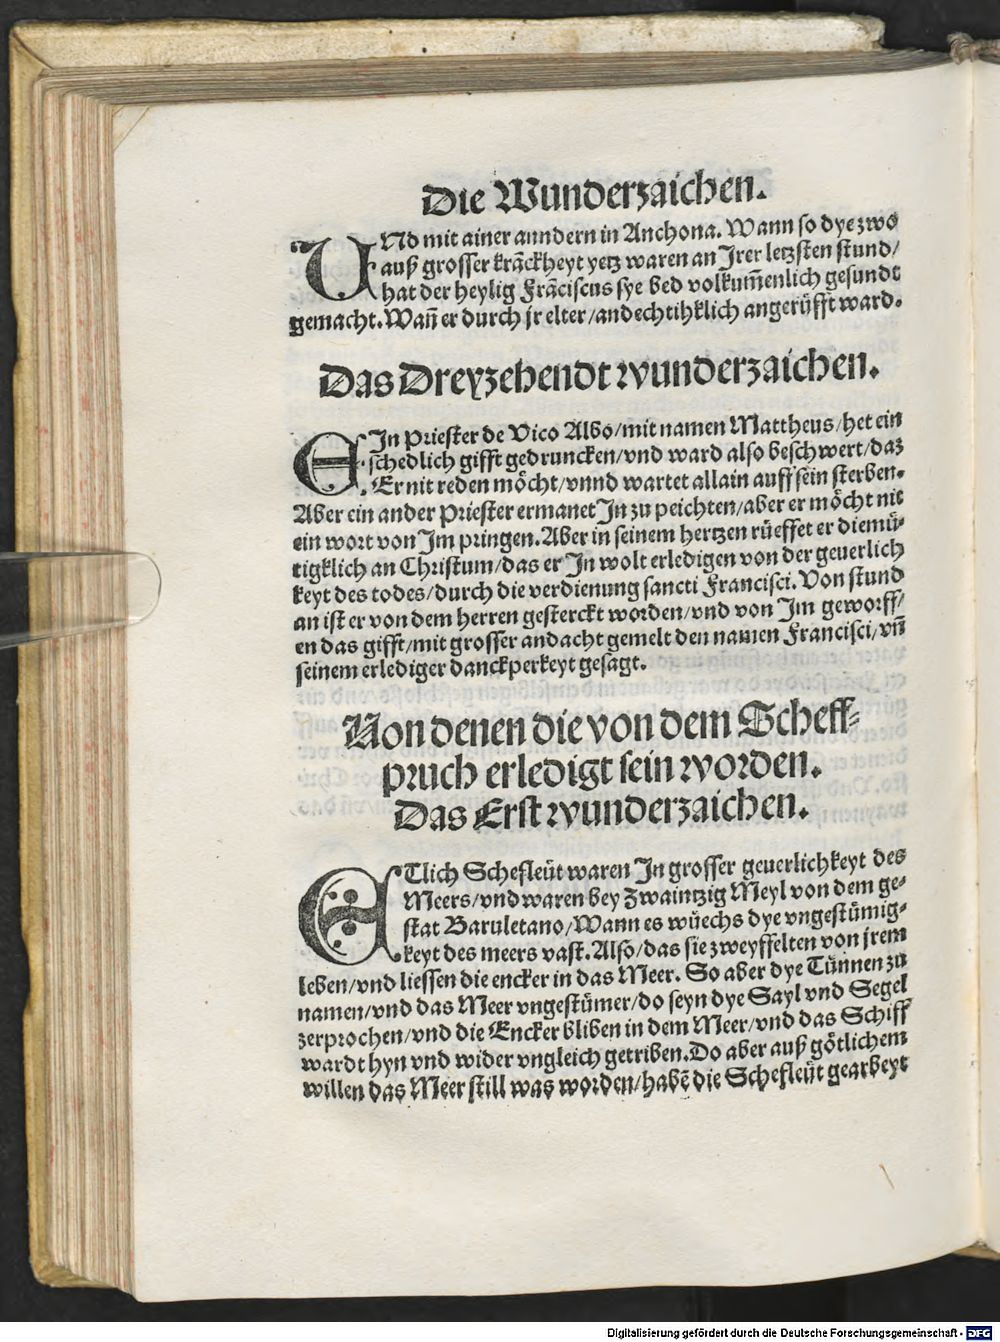 Die Wunderzaichen.
UNd mit ainer anndern in Anchona. Wann so dye zwo
auß grosser krãckheyt yetz waren an Jrer letzsten stund/
hat der heylig Frãciscus sye bed volkum̃enlich gesundt
gemacht. Wañ er durch jr elter/andechtihklich angerüfft ward.
Das Dreyzehendt wunderzaichen.
EJn Priester de Vico Albo/mit namen Mattheus/het ein
schedlich gifft gedruncken/vnd ward also beschwert/daz
Er nit reden möcht/vnnd wartet allain auff sein sterben.
Aber ein ander Priester ermanet Jn zu peichten/aber er möcht nit
ein wort von Jm pringen. Aber in seinem hertzen rüeffet er diemü-
tigklich an Christum/das er Jn wolt erledigen von der geuerlich
keyt des todes/durch die verdienung sancti Francisci. Von stund
an ist er von dem herren gesterckt worden/vnd von Jm geworff/
en das gifft/mit grosser andacht gemelt den namen Francisci/vñ
seinem erlediger danckperkeyt gesagt.
Von denen die von dem Scheff-
pruch erledigt sein worden.
Das Erst wunderzaichen.
ETlich Schefleüt waren Jn grosser geuerlichkeyt des
Meers/vnd waren bey Zwaintzig Meyl von dem ge-
stat Baruletano/Wann es wüechs dye vngestümig-
keyt des meers vast. Also/das sie zweyffelten von jrem
leben/vnd liessen die encker in das Meer. So aber dye Tünnen zu
namen/vnd das Meer vngestümer/do seyn dye Sayl vnd Segel
zerprochen/vnd die Encker bliben in dem Meer/vnd das Schiff
wardt hyn vnd wider vngleich getriben. Do aber auß götlichem
willen das Meer still was worden/habẽ die Schefleüt gearbeyt
Digitalisierung gefördert durch die Deutsche Forschungsgemeinschaft - DFG